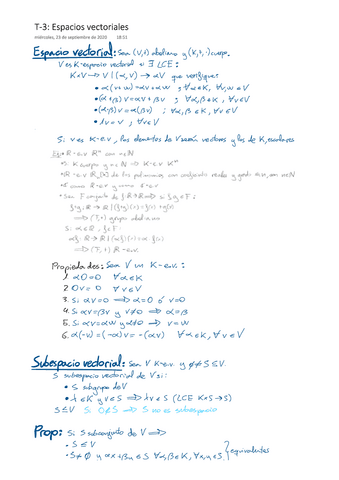 T-3: Espacios vectoriales
miércoles, 23 de septiembre de 2020 18:51
Espacio vectorial: Sea (V,+) abeliano y (K,+,·) cuerpo.
V es K-espacio vectorial si ∃ LCE:
K×V → V | (α,v) → αv que verifique:
• α(v+w)=αv+αw ; ∀α∈K, ∀v,w∈V
• (α+β)v=αv+βv ; ∀α,β∈K, ∀v∈V
• (αβ)v=α(βv) ; ∀α,β∈K, ∀v∈V
• 1v=v ; ∀v∈V
Si V es K-e.v, los elementos de V serán vectores y los de K, escalares.
Ej: • R-e.v R^n con n∈N
• K cuerpo y n∈N ⟹ K-e.v K^n
• R-e.v R_n[x] de los polinomios con coeficientes reales y grado
• Sea F conjunto de
f+g: R→R | (f+g)(x)=f(x)+g(x)
⟹ (F,+) grupo abeliano
Si α∈R, f∈F:
αf: R→R | (αf)(x)=α f(x)
⟹ (F,+) R-e.v.
Propiedades: Sea V un K-e.v.:
1. α0=0 ∀α∈K
2. 0v=0 ∀v∈V
3. Si αv=0 ⟹ α=0 ó v=0
4. Si αv=βv y v≠0 ⟹ α=β
5. Si αv=αw y α≠0 ⟹ v=w
6. α(-v)=(-α)v=-(αv) ∀α∈K, ∀v∈V
Subespacio vectorial: Sea V K-e.v. y ∅≠S⊆V.
S subespacio vectorial de V si:
• S subgrupo de V
• λ∈K y v∈S ⟹ λv∈S (LCE K×S→S)
S≤V Si 0∉S ⟹ S no es subespacio
Prop: Si S subconjunto de V ⟹
• S≤V
• S≠∅ y αx+βy∈S ∀α,β∈K, ∀x,y∈S } equivalentes